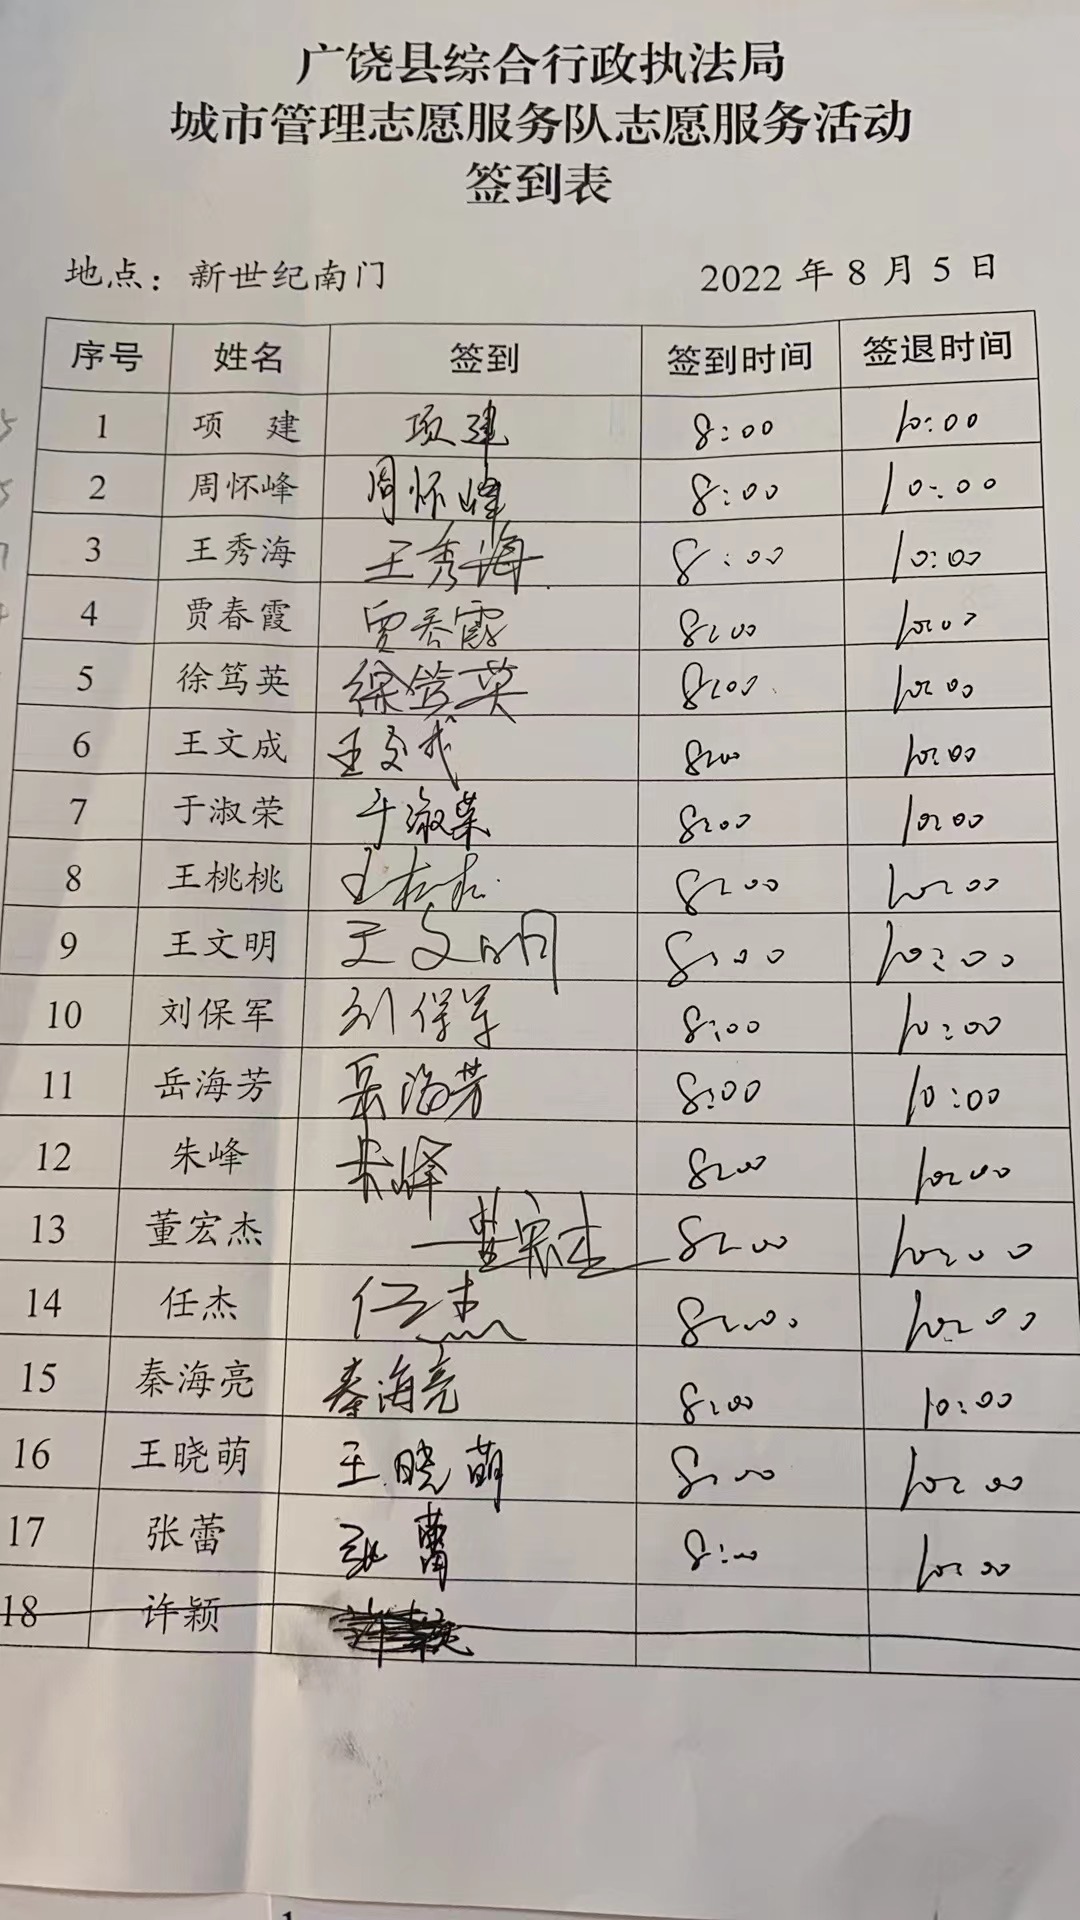 广饶县综合行政执法局
城市管理志愿服务队志愿服务活动
签到表
地点：新世纪南门 2022 年 8 月 5 日
序号 姓名 签到 签到时间 签退时间
1 项 建 项建 8:00 10:00
2 周怀峰 周怀峰 8:00 10:00
3 王秀海 王秀海 8:00 10:00
4 贾春霞 贾春霞 8:00 10:00
5 徐笃英 徐笃英 8:00 10:00
6 王文成 王文成 8:00 10:00
7 于淑荣 于淑荣 8:00 10:00
8 王桃桃 王桃桃 8:00 10:00
9 王文明 王文明 8:00 10:00
10 刘保军 刘保军 8:00 10:00
11 岳海芳 岳海芳 8:00 10:00
12 朱峰 朱峰 8:00 10:00
13 董宏杰 董宏杰 8:00 10:00
14 任杰 任杰 8:00 10:00
15 秦海亮 秦海亮 8:00 10:00
16 王晓萌 王晓萌 8:00 10:00
17 张蕾 张蕾 8:00 10:00
18 许颖